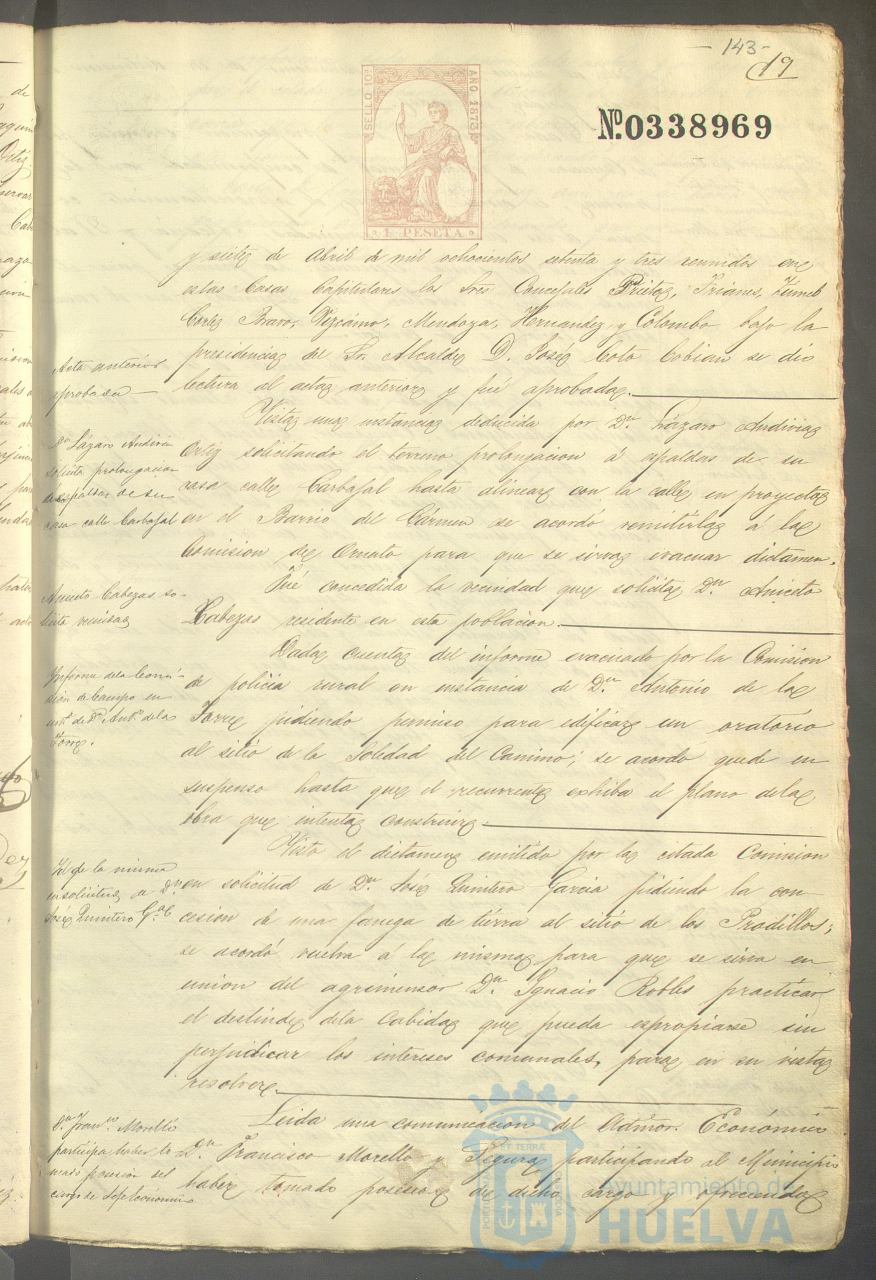 - 143 -
19
SELLO 10º
AÑO 1873
1 PESETA
Nº.0338969
y siete de Abril de mil ochocientos setenta y tres reunidos en
las Casas Capitulares los Sres Concejales Prieto, Trianes,
Cortés Bravo, Vizcaino, Mendoza, Hernandez y Colombo bajo la
presidencia del Sr. Alcalde D. José Coto Cobian se dió
lectura al acta anterior y fué aprobada.
Acta anterior
aprobada
Vista una instancia deducida por Dn. Lázaro Andivia
Ortiz solicitando el terreno prolongacion á espaldas de su
casa calle Carbajal hasta alinear con la calle en proyecto
en el Barrio del Cármen se acordó remitirla á la
Comision de Ornato para que se sirva evacuar dictamen.
Dn. Lázaro Andivia
solicita prolongacion
de espaldas de su
casa calle Carbajal
Fué concedida la vecindad que solicita Dn. Aniceto
Cabezas residente en esta poblacion.
Aniceto Cabezas so-
licita vecindad
Dada cuenta del informe evacuado por la Comision
de policia rural en instancia de Dn. Antonio de la
Torre pidiendo permiso para edificar un oratorio
al sitio de la Soledad del Camino; se acordo quede en
suspenso hasta que el recurrente exhiba el plano dela
obra que intenta construir.
Informe dela Comi-
sion de Campo en
inst.ª de Dn. Antº. dela
Torre.
Visto el dictamen emitido por la citada Comision
en solicitud de Dn. José Quintero Garcia pidiendo la con
cesion de una fanega de tierra al sitio de los Pradillos;
se acordó vuelva á la misma para que se sirva en
union del agrimensor Dn. Ignacio Robles practicar
el deslinde dela cabida que pueda espropiarse sin
perjudicar los intereses comunales, para en su vista
resolver.
Yd. de la misma
en solicitud de Dn.
José Quintero Gª.
Leida una comunicacion del Admor. Económico
Dn. Francisco Morello y Segura participando al Municipio
haber tomado posesion de dicho cargo y ofreciendo
Dn. Franco. Morello
participa haber to
mado posesion del
cargo de Jefe Económico
Ayuntamiento de
HUELVA